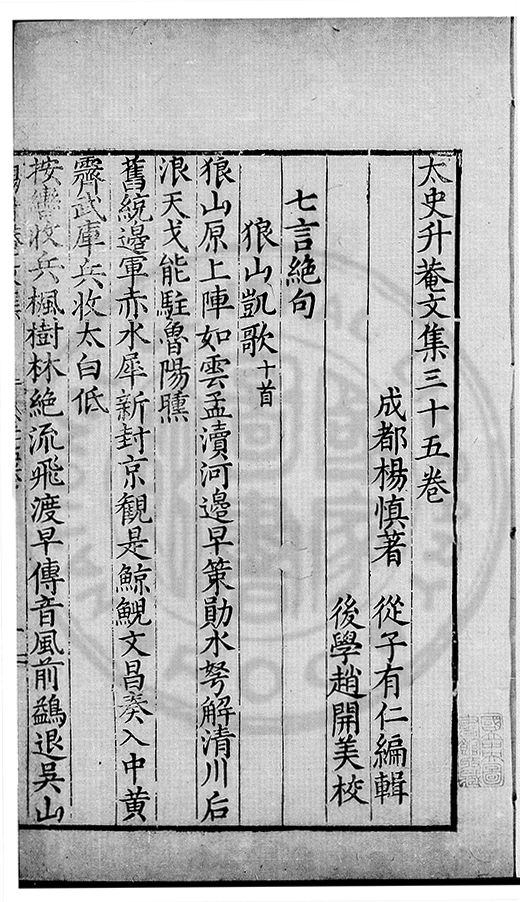 太史升菴文集三十五卷
成都楊慎著 從子有仁編輯
後學趙開美校
七言絶句
狼山凱歌十首
狼山原上陣如雲孟瀆河邊早策勛水弩解清川后
浪天戈能駐魯陽曛
舊統邊軍赤水犀新封京觀是鯨鯢文昌奏入中黄
霽武庫兵收太白低
按轡收兵楓樹林絶流飛渡早傳音風前鷁退吳山